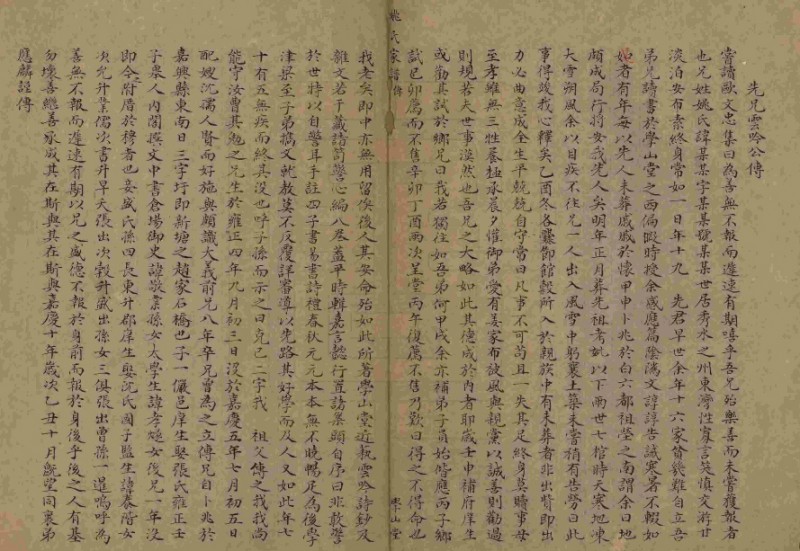 先兄雲吟公傳
嘗讀歐文忠集曰為善無不報而遲速有期嘻乎吾兄殆樂善而未嘗獲報者
也兄姓姚氏諱某某字某某號某某世居秀水之州東灣性寡言笑慎交游甘
淡泊安布素終身常如一日年十九　先君早世余年十六家貧幾難自立吾
弟兄讀書於學山堂之西偏暇時授余感應篇陰隲文諄諄告誡寒暑不輟如
如者有年每以先人未葬戚戚於懷甲申卜兆於白六都祖塋之南謂余曰地
頗成局行將安我先人矣明年正月葬先祖考妣以下兩世七棺時天寒地凍
大雪朔風余以目疾不往兄一人出入風雪中躬裹土築未嘗稍有告勞曰此
事得竣我心釋矣乙酉冬各爨節館穀所入於親族中有未葬者非出貲即出
力必曲意成全生平兢兢自守嘗曰凡事不可苟且一失其足終身莫贖事母
至孝雖無三牲養極承晨夕懽御弟愛有姜家布被風與親黨以誠善則勸過
則規若夫世事漠然也吾兄之大略如此其德成於內者耶歲壬申補府庠生
或勸其試於鄉兄曰我若獨往如吾弟何甲戌余亦補弟子員始偕應丙子鄉
試己卯薦而不售辛卯丁酉兩次呈堂丙午復薦不售乃歎曰得之不得命也
姚氏家譜 傳
學山堂
我老矣即中亦無用留俟後人其安命殆如此所著學山堂近執雲吟詩鈔及
雜文若干藏諸笥警心編八卷蓋平時輯嘉言懿行置諸案頭自序曰非敢警
於世特以自警耳手註四子書易書詩禮春秋元元本本無不曉暢足為後學
津梁至子弟摛文執教莫不反覆詳審導以先路其好學而及人又如此年七
十有五無疾而終其沒也呼子孫而示之曰克己二字我　祖父傳之我我尚
能守汝曹其勉之兄生於雍正四年九月初三日沒於嘉慶五年七月初五日
配嫂沈孺人賢而好施與頗識大義前兄八年卒兄曾為之立傳兄自卜兆於
嘉興縣東南日三字圩即新塘之趙家石橋也子一儼邑庠生娶張氏雍正壬
子舉人內閣撰文中書倉場御史諱敬業孫女太學生諱孝煃女後兄一年沒
即合附厝於穆者也妾盛氏孫四長東升郡庠生娶沈氏國子監生諱泰階女
次允升業儒次書升早夭張出次穀升盛出孫女三俱張出曾孫一暹嗚呼為
善無不報而遲速有期以兄之盛德不報於身前而報於身後乎後之人有基
勿壞善繼善承咸其在斯與其在斯與嘉慶十年歲次乙丑十月旣望同衷弟
應麟謹傳